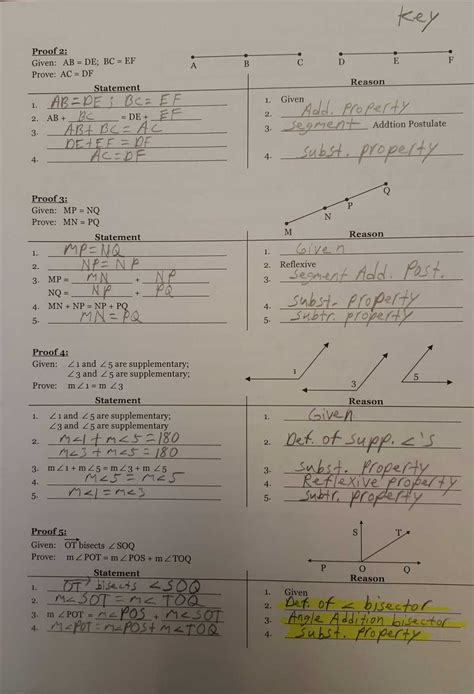 Key
Proof 2:
Given: AB = DE; BC = EF
Prove: AC = DF
A B C D E F
Statement
Reason
1. AB=DE ; BC= EF
1. Given
2. AB + BC = DE + EF
2. Add. Property
3. AB+ BC = AC
3. segment Addtion Postulate
DE+EF = DF
4. AC=DF
4. subst. property
Proof 3:
Given: MP = NQ
Prove: MN = PQ
M N P Q
Statement
Reason
1. MP=NQ
1. Given
2. NP= NP
2. Reflexive
3. MP = MN + NP
3. segment Add. Post.
NQ = NP + PQ
4. MN + NP = NP + PQ
4. subst. property
5. MN = PQ
5. subtr. property
Proof 4:
Given: ∠1 and ∠5 are supplementary;
∠3 and ∠5 are supplementary;
Prove: m∠1 = m∠3
1 3 5
Statement
Reason
1. ∠1 and ∠5 are supplementary;
∠3 and ∠5 are supplementary;
1. Given
2. m∠1+m∠5=180
2. Def. of supp. ∠'s
m∠3+m∠5=180
3. m∠1 + m∠5 = m∠3 + m∠5
3. subst. Property
4. m∠5 = m∠5
4. Reflexive property
5. m∠1=m∠3
5. subtr. property
Proof 5:
Given: OT bisects ∠SOQ
Prove: m∠POT = m∠POS + m∠TOQ
S T
P O Q
Statement
Reason
1. OT bisects ∠SOQ
1. Given
2. m∠SOT = m∠TOQ
2. Def. of ∠ bisector
3. m∠POT = m∠POS + m∠SOT
3. Angle Addition bisector
4. m∠POT=m∠POS+m∠TOQ
4. subst. property